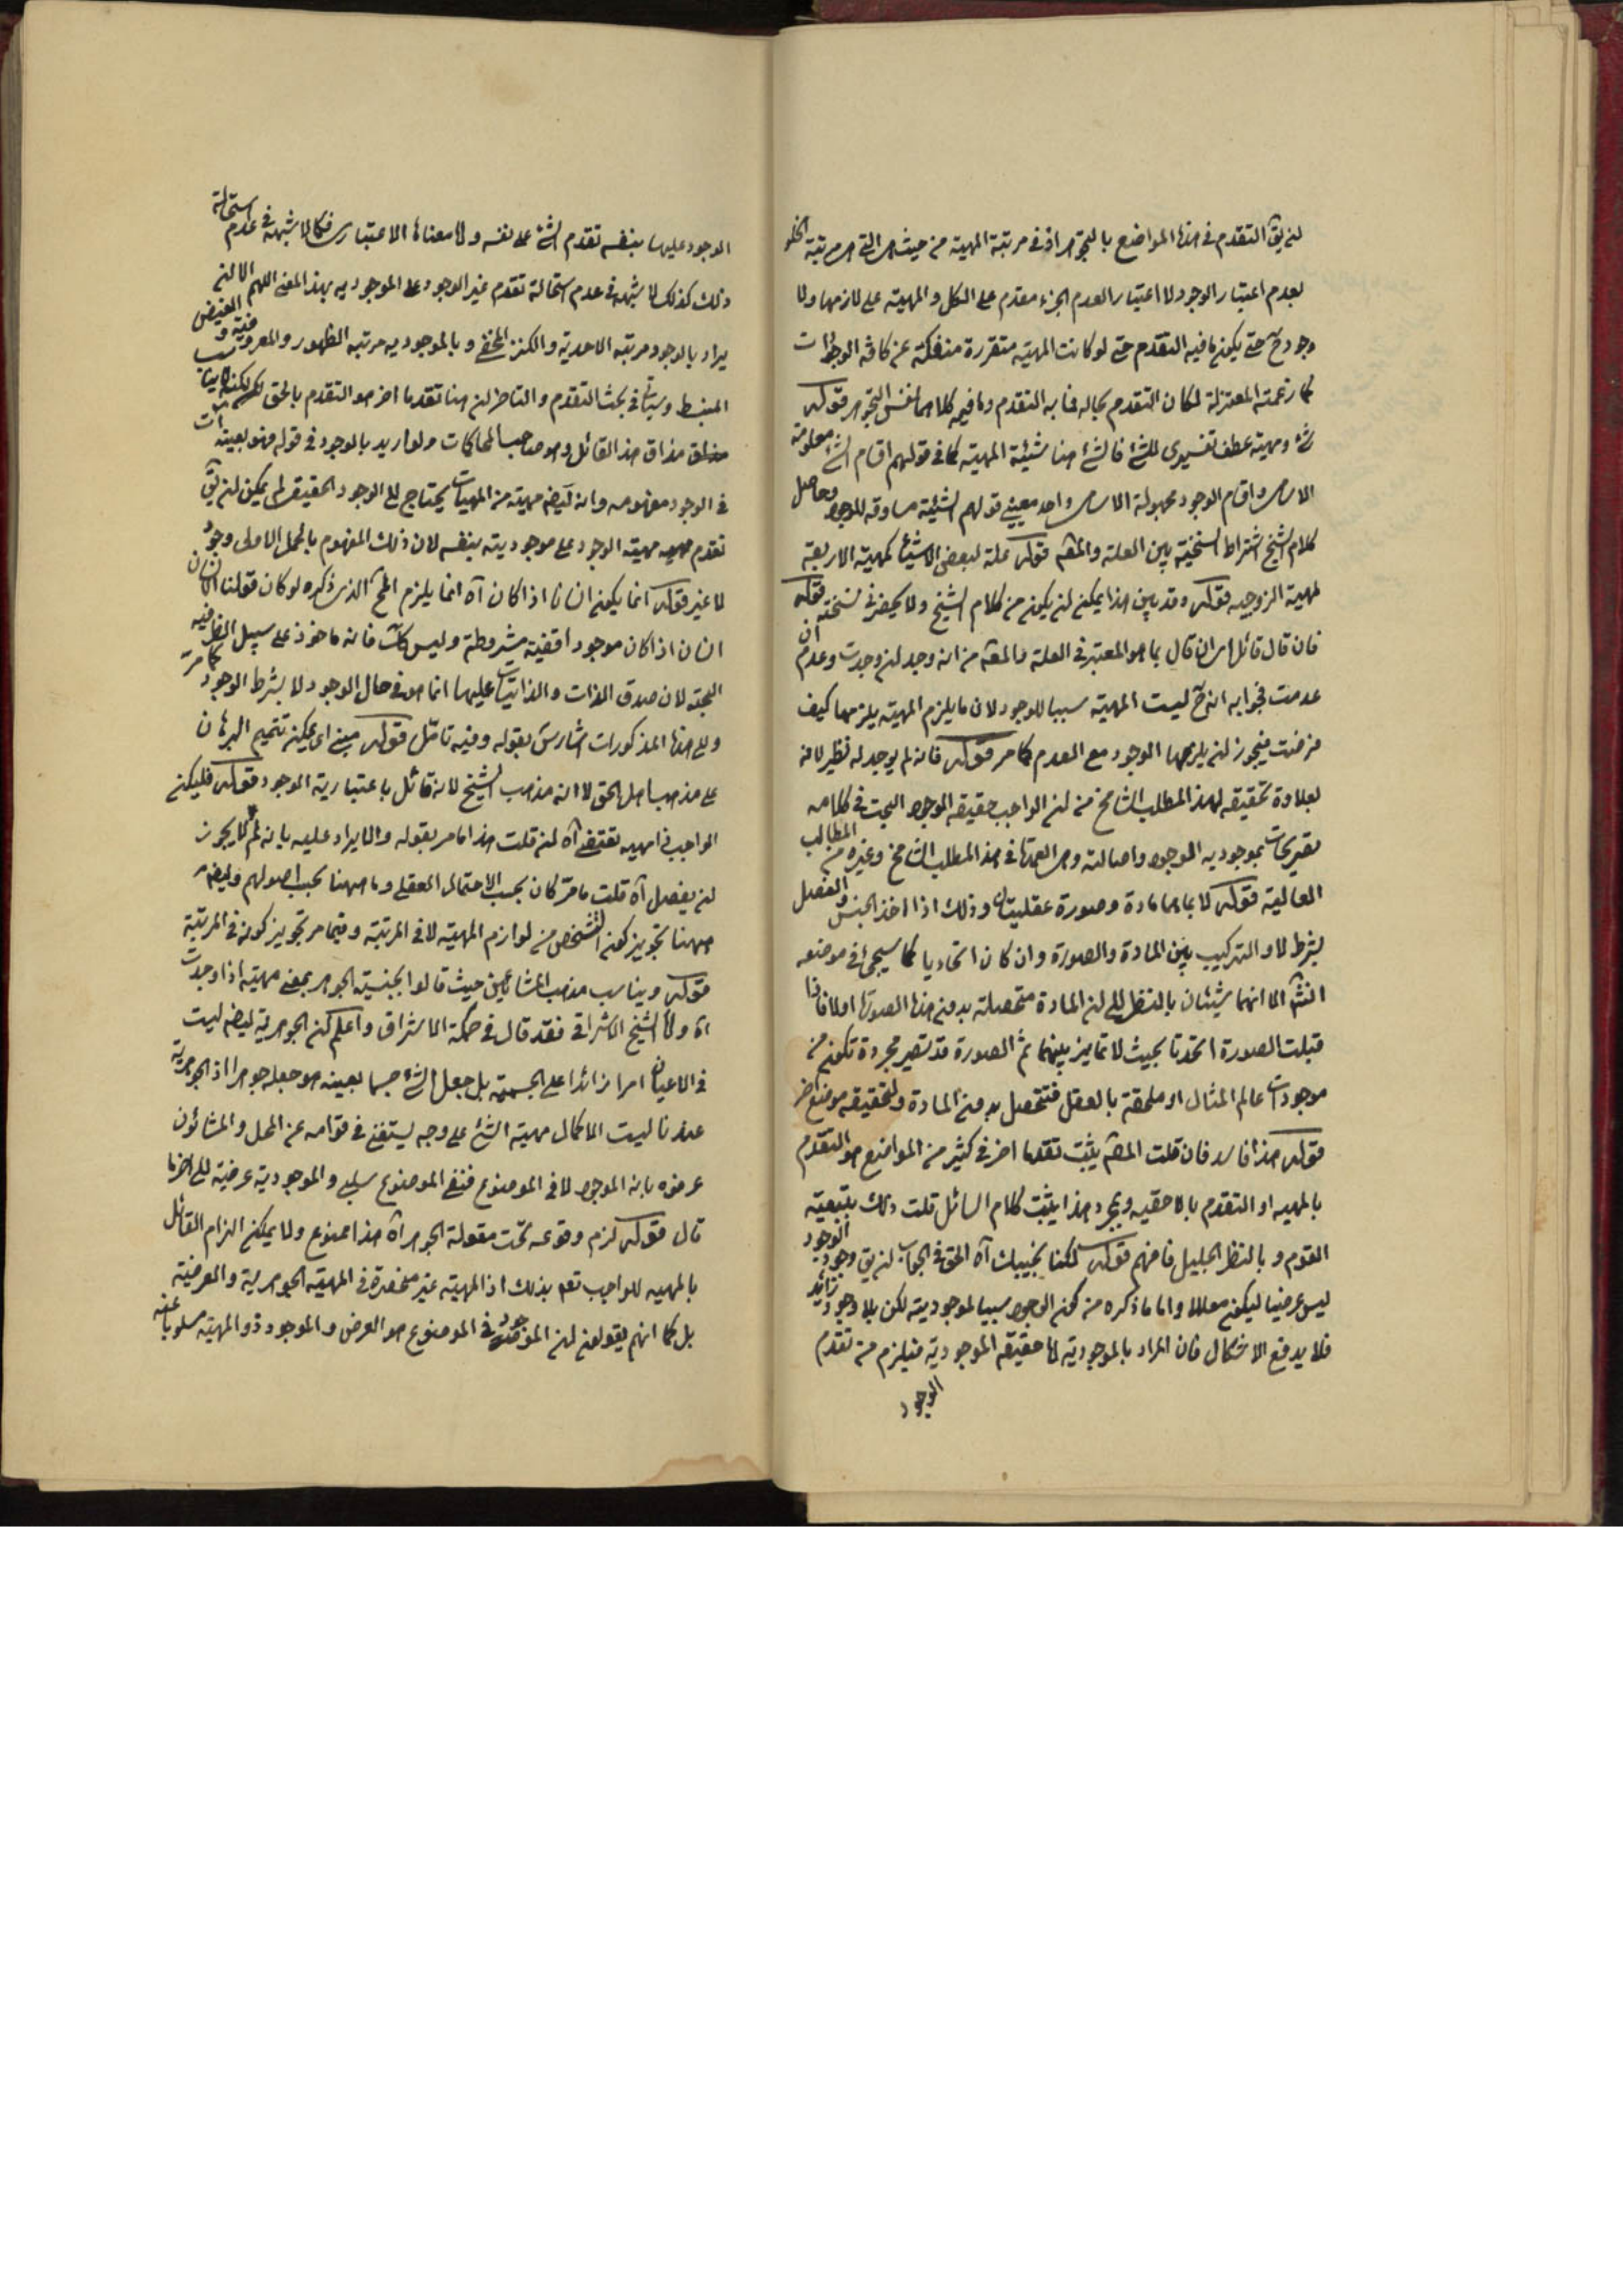 لن يق التقدم فى هذه المواضع بالتجوهر اذ فى مرتبة المهية من حيث هى التى هى مرتبة الخلو
بعدم اعتبار الوجود لا اعتبار العدم الجزء مقدم على الكل والمهية على لازمها ولا
وجود ح حتى يكون ما فيه التقدم حتى لو كانت المهية متقررة منفكة عن كافة الوجودات
كما زعمته المعتزلة لكان التقدم بحاله فما به التقدم وما فيه كلاهما نفس التجوهر قوله
شئ ومهية عطف تفسيرى للشئ فالشئ هنا شيئية المهية كما فى قولهم اقسام الشئ معلومة
الاسامى واقسام الوجود مجهولة الاسامى واحد معينى قولهم الشيئية مساوقة للوجود وحاصل
كلام الشيخ اشتراط السنخية بين العلة والمعلول قوله علة لبعض الاشياء كمهية الاربعة
لمهية الزوجية قوله وقد بين هذا يمكن ان يكون من كلام الشيخ ولا يحضرنى نسخته قوله
فان قال قائل اى ان قال بما هو المعتبر فى العلة والمعلول من انه وجد ان وجدت وعدم ان
عدمت فجوابه انه ح ليست المهية سببا للوجود لان ما يلزم المهية يلزمها كيف
فرضت فيجوز ان يلزمها الوجود مع العدم كما مر قوله فانه لم يوجد له نظير لانه
بعلاوة تحقيقه لهذا المطلب الشامخ من ان الواجب حقيقة الوجود البحت فى كلامه
تصريحات بموجودية الوجود واصالته وهى العمدة فى هذا المطلب الشامخ وغيره من المطالب
العالية قوله لا بما هما مادة وصورة عقليتان وذلك اذا اخذ الجنس والفصل
بشرط لا والتركيب بين المادة والصورة وان كان اتحاديا كما سيجئ فى موضعه
انش الا انهما شيئان بالنظر الى ان المادة متحصلة بدون هذه الصورة اولا فاذا
قبلت الصورة اتحدتا بحيث لا تمايز بينهما ثم الصورة قد تصير مجردة تكون من
موجودات عالم المثال او ملحقة بالعقل فتتحصل بدون المادة ولتحقيقه موضع اخر
قوله هذا فاسد فان قلت المص يثبت تقدما اخر فى كثير من المواضع هو التقدم
بالمهية او التقدم بالاحقية وبمجرد هذا يثبت كلام السائل قلت ذلك بتبعية
القوم وبالنظر الجليل فافهم قوله لكنا نجيبك آه الحق فى الجواب ان يق وجود الوجود
ليس عرضيا ليكون معللا واما ما ذكره من كون الوجود سببا لموجوديته لكن بلا وجود زائد
فلا يدفع الاشكال فان المراد بالموجودية لها حقيقة الموجودية فيلزم من تقدم
الوجود
الوجود عليها بنفسه تقدم الشئ على نفسه ولها معناها الاعتبارى فكما لا شبهة فى عدم استحالة
ذلك كذلك لا شبهة فى عدم استحالة تقدم غير الوجود على الموجودية بهذا المعنى اللهم الا ان
يراد بالوجود مرتبة الاحدية والكنز المخفى وبالموجودية مرتبة الظهور والمعروفية والفيض
المنبسط وسياتى فى بحث التقدم والتاخر ان هنا تقدما اخر هو التقدم بالحق لكنه لا يناسب
مذاق هذا القائل وهو صاحب المحاكمات ولو اريد بالوجود فى قوله فهو بعينه
فى الوجود مفهومه وانه ايضا مهية من المهيات يحتاج الى الوجود الحقيقى لم يمكن ان يق
تقدم مهية الوجود على موجوديته بنفسه لان ذلك المفهوم بالحمل الاولى وجود
لا غير قوله انما يكون انسانا اذا كان آه انما يلزم المح الذى ذكره لو كان قولنا الانسان
انسان اذا كان موجودا قضية مشروطة وليس كك فانه ماخوذ على سبيل الظرفية
البحتة لان صدق الذات والذاتيات عليها انما هو فى حال الوجود لا بشرط الوجود كما مر
والى هذه المذكورات اشار س بقوله وفيه تامل قوله مبنى اى يمكن تتميم البرهان
على مذهب اهل الحق لا انه مذهب الشيخ لانه قائل باعتبارية الوجود قوله فليكن
الواجب فى مهية تقتضى آه ان قلت هذا ما مر بقوله والايراد عليه بانه لم لا يجوز
ان يفصل آه قلت ما مر كان بحسب الاحتمال العقلى وما ههنا بحسب اصولهم وايضا
ههنا تجويز كون التشخص من لوازم المهية لا فى المرتبة وفيما مر تجويز كونه فى المرتبة
قوله ويناسب مذهب المشائين حيث قالوا بجنسية الجوهر بمعنى مهية اذا وجدت
آه ولا الشيخ الاشراقى فقد قال فى حكمة الاشراق واعلم ان الجوهرية ايضا ليست
فى الاعيان امرا زائدا على الجسمية بل جعل الشئ جسما بعينه هو جعله جوهرا اذ الجوهرية
عندنا ليست الا كمال مهية الشئ على وجه يستغنى فى قوامه عن المحل والمشاؤن
عرفوه بانه الموجود لا فى الموضوع فنفى الموضوع سلبى والموجودية عرضية الى اخر ما
قال قوله لزم وقوعه تحت مقولة الجوهر آه هذا ممنوع ولا يمكن الزام القائل
بالمهية للواجب تعالى بذلك اذ المهية غير منحصرة فى المهية الجوهرية والعرضية
بل كما انهم يقولون ان الموجود فى الموضوع هو العرض والموجود ذو المهية مسلوبا عنه